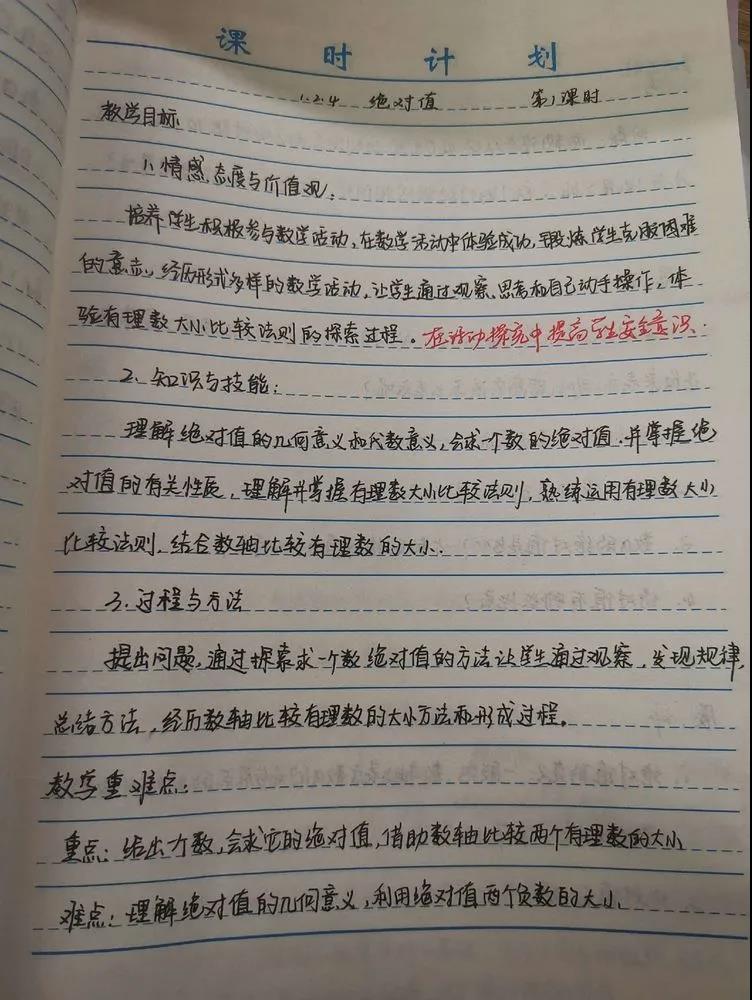 课时计划
1.2.4 绝对值 第1课时
教学目标
1、情感态度与价值观:
培养学生积极参与数学活动,在数学活动中体验成功,锻炼学生克服困难
的意志。经历形式多样的数学活动,让学生通过观察、思考和自己动手操作,体
验有理数大小比较法则的探索过程。在活动探究中提高学生安全意识.
2、知识与技能:
理解绝对值的几何意义和代数意义,会求一个数的绝对值.并掌握绝
对值的有关性质,理解并掌握有理数大小比较法则,熟练运用有理数大小
比较法则,结合数轴比较有理数的大小.
3、过程与方法
提出问题,通过探索求一个数绝对值的方法让学生通过观察,发现规律,
总结方法,经历数轴比较有理数的大小方法和形成过程。
教学重难点:
重点:给出一个数,会求它的绝对值,借助数轴比较两个有理数的大小
难点:理解绝对值的几何意义,利用绝对值两个负数的大小.